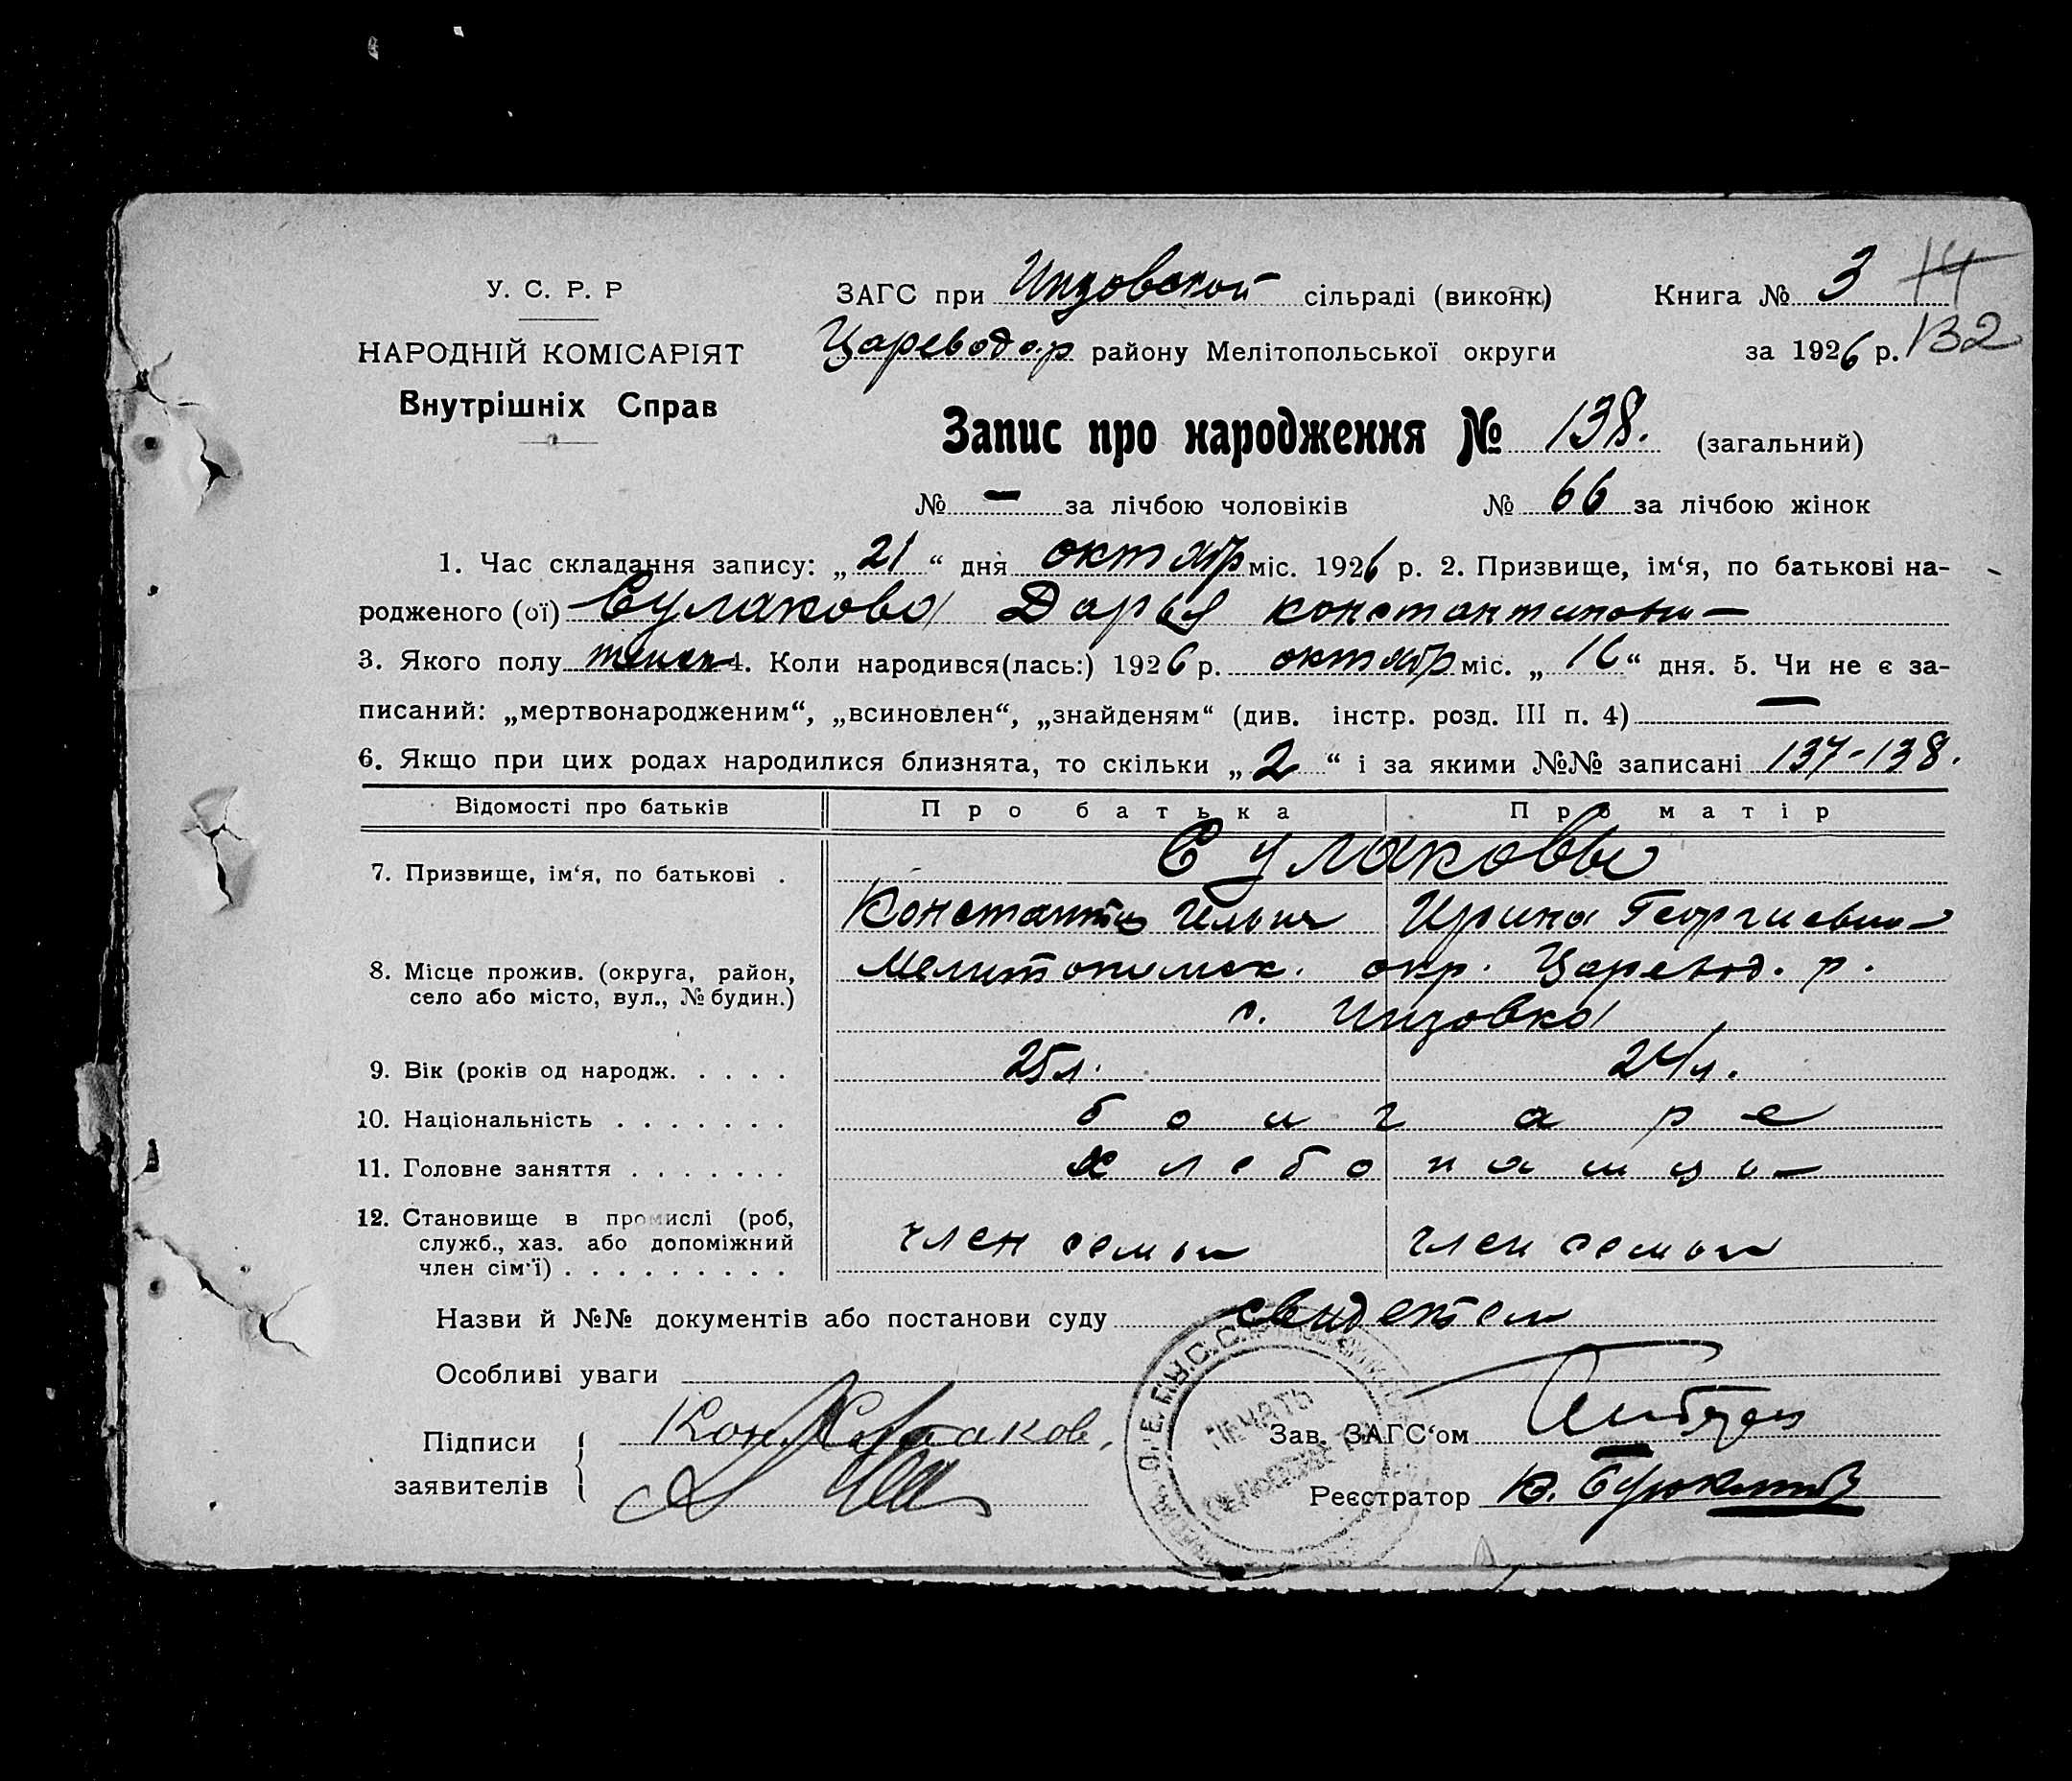 У. С. Р. Р
НАРОДНІЙ КОМІСАРІЯТ
Внутрішніх Справ
ЗАГС при Инзовской сільраді (виконк) Книга № 3 14
Цареводо.р районy Мелітопольської округи за 1926 р. 132
Запис про народження № 138. (загальний)
№ — за лічбою чоловіків № 66 за лічбою жінок
1. Час складання запису: „21“ дня октябр міс. 1926 р. 2. Призвище, ім‘я, по батькові на-
родженого (ої) Сулакова Дарья Константиновн—
3. Якого полу женск 4. Коли народився(лась:) 1926 р. октябр міс. „16“ дня. 5. Чи не є за-
писаний: „мертвонародженим“, „всиновлен“, „знайденям“ (див. інстр. розд. III п. 4) —
6. Якщо при цих родах народилися близнята, то скільки „2“ і за якими №№ записані 137-138.
Відомості про батьків Про батька Про матір
7. Призвище, ім‘я, по батькові . Сулаковы
Константин Ильич Ирина Георгиевна
8. Місце прожив. (округа, район, село або місто, вул., № будин.) Мелитопольск. окр. Царевод. р.
с. Инзовка
9. Вік (років од народж. . . . . 25 л. 24 л.
10. Національність . . . . . . . болгаре
11. Головне заняття . . . . . . . хлебопашцы
12. Становище в промислі (роб, служб., хаз. або допоміжний член сім‘ї) . . . . . . . . . член семьи член семьи
Назви й №№ документів або постанови суду свидетели
Особливі уваги
Підписи заявителів Кон. Сулаков.
Зав. ЗАГС‘ом
Реєстратор
ПЕЧАТЬ